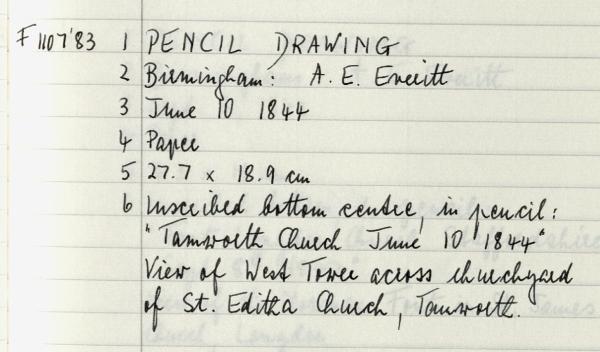 F 1107'83 1 PENCIL DRAWING
2 Birmingham: A. E. Everitt
3 June 10 1844
4 Paper
5 27.7 x 18.9 cm
6 Inscribed bottom centre, in pencil:
"Tamworth Church June 10 1844"
View of West Tower across churchyard
of St. Editha Church, Tamworth.